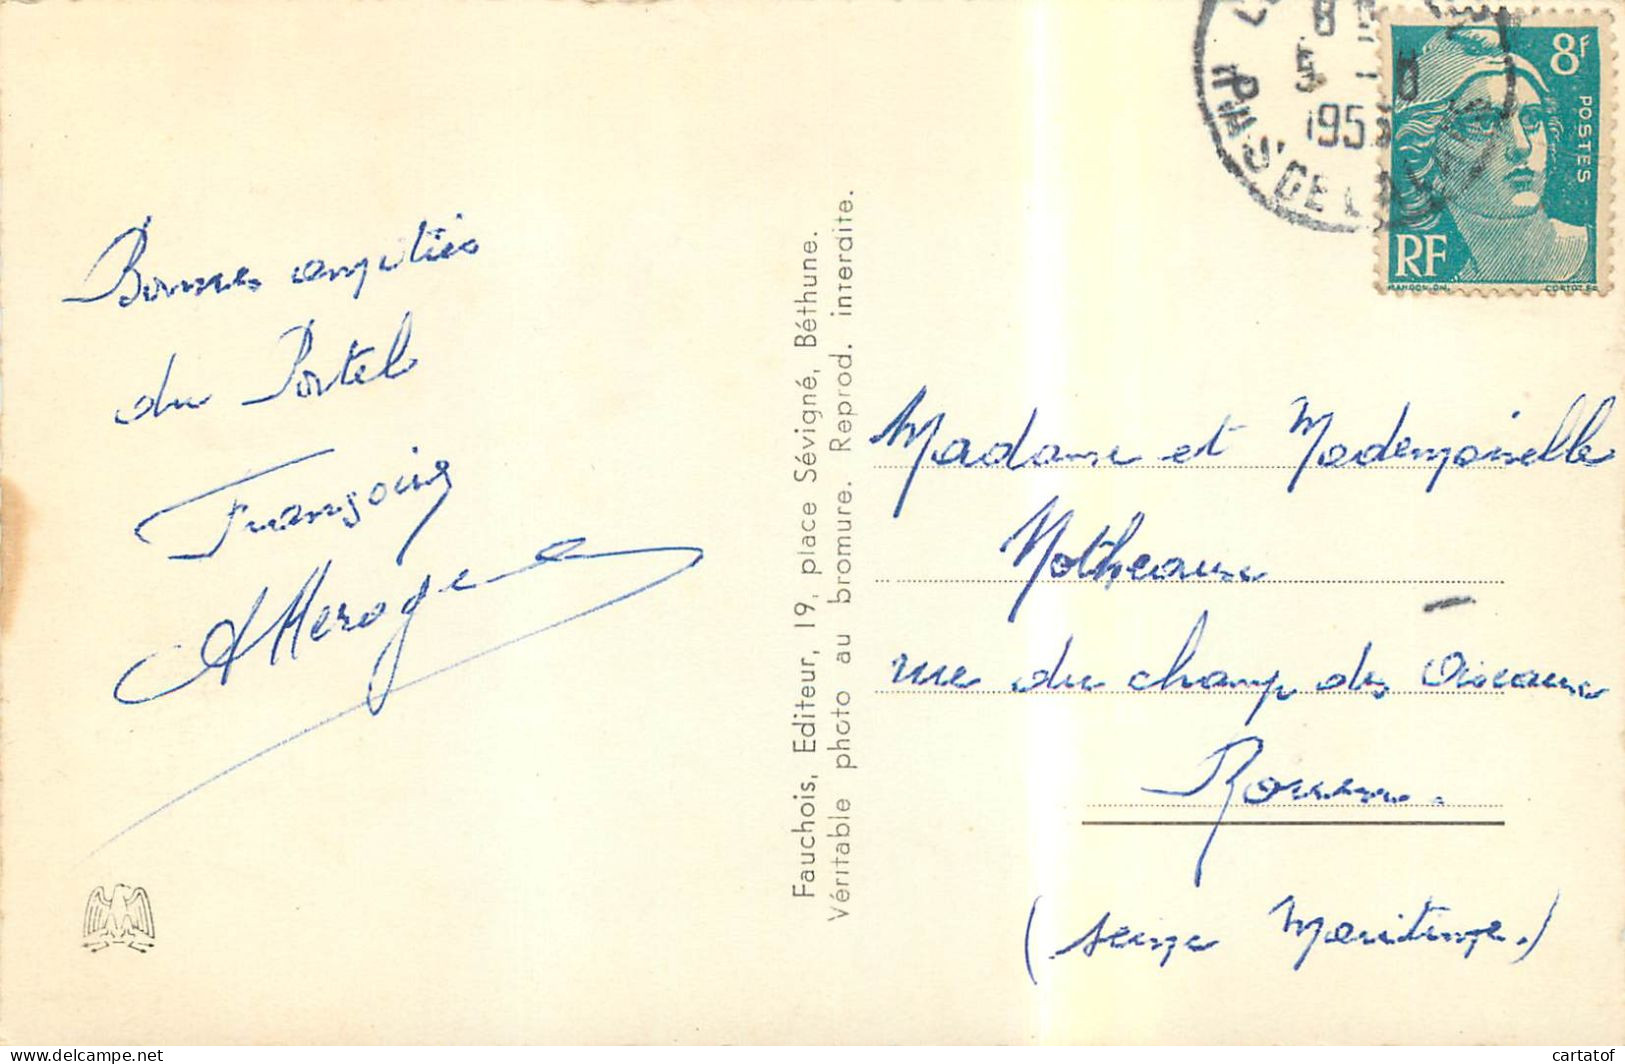 Bonnes amitiés
du Portel
Françoise
Fauchois, Editeur, 19, place Sévigné, Béthune.
Véritable photo au bromure. Reprod. interdite.
5 - 8
195
PAS DE CALAIS
8F
POSTES
RF
GANDON DN.
CORTOT SC.
Madame et Mademoiselle
rue du champ des Oiseaux
Rouen.
(Seine Maritime.)
https://www.delcampe.net
cartatof